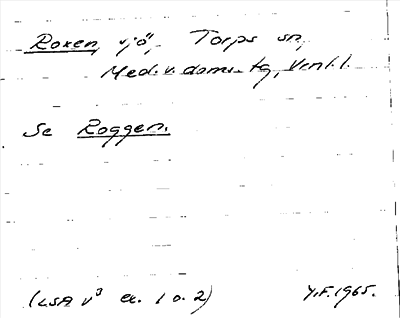 Roxen, sjö, Torps sn,
Med. v. doms. tg,
Se Roggen.
(LSA v³ ex. 1 o. 2) Y.F. 1965.